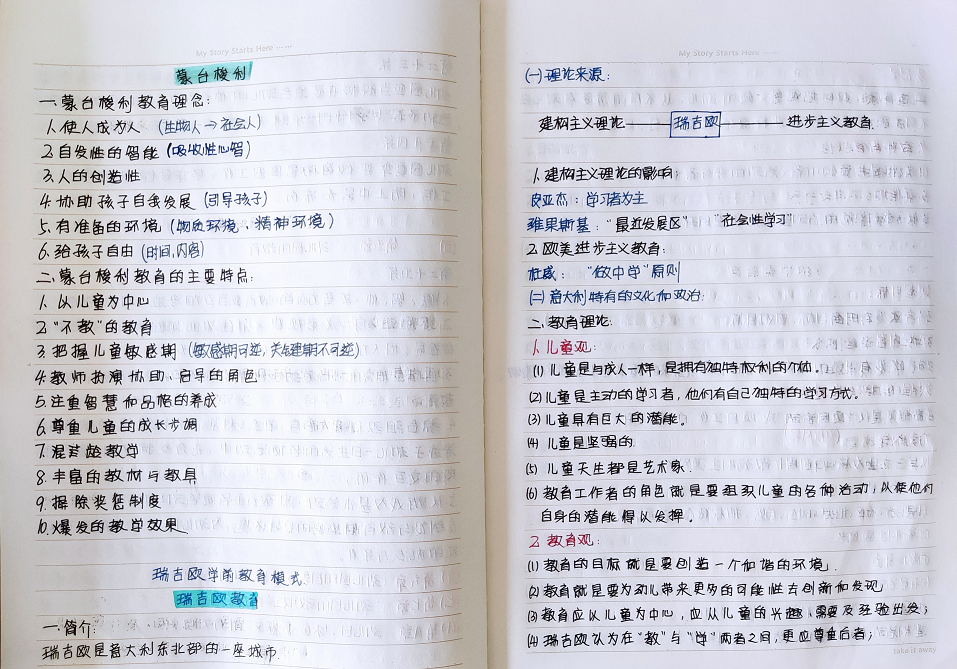 My Story Starts Here ······
蒙台梭利
一.蒙台梭利教育理念:
1.使人成为人 (生物人→社会人)
2.自发性的智能 (吸收性心智)
3.人的创造性
4.协助孩子自我发展 (引导孩子)
5.有准备的环境 (物质环境、精神环境)
6.给孩子自由 (时间,内容)
二.蒙台梭利教育的主要特点:
1.以儿童为中心
2."不教"的教育
3.把握儿童敏感期 (敏感期可逆,关键期不可逆)
4.教师扮演协助、启导的角色
5.注重智慧和品格的养成
6.尊重儿童的成长步调
7.混龄教学
8.丰富的教材与教具
9.摒除奖惩制度
10.爆发的教学效果.
瑞吉欧学前教育模式.
瑞吉欧教育
一.简介:
瑞吉欧是意大利东北部的一座城市.
My Story Starts Here ······
(一)理论来源:
建构主义理论——瑞吉欧——进步主义教育.
1.建构主义理论的影响:
皮亚杰:学习者为主
维果斯基:"最近发展区" "社会性学习"
2.欧美进步主义教育:
杜威:"做中学"原则
(二)意大利特有的文化和政治:
二.教育理论:
1.儿童观:
(1)儿童是与成人一样,是拥有独特权利的个体。
(2)儿童是主动的学习者,他们有自己独特的学习方式。
(3)儿童具有巨大的潜能。
(4)儿童是坚强的
(5)儿童天生都是艺术家.
(6)教育工作者的角色就是要组织儿童的各种活动,以使他们
自身的潜能得以发挥。
2.教育观:
(1)教育的目标就是要创造一个和谐的环境.
(2)教育就是要为幼儿带来更多的可能性去创新和发现
(3)教育应以儿童为中心,应从儿童的兴趣、需要及经验出发;
(4)瑞吉欧认为在"教"与"学"两者之间,更应尊重后者;
take it away